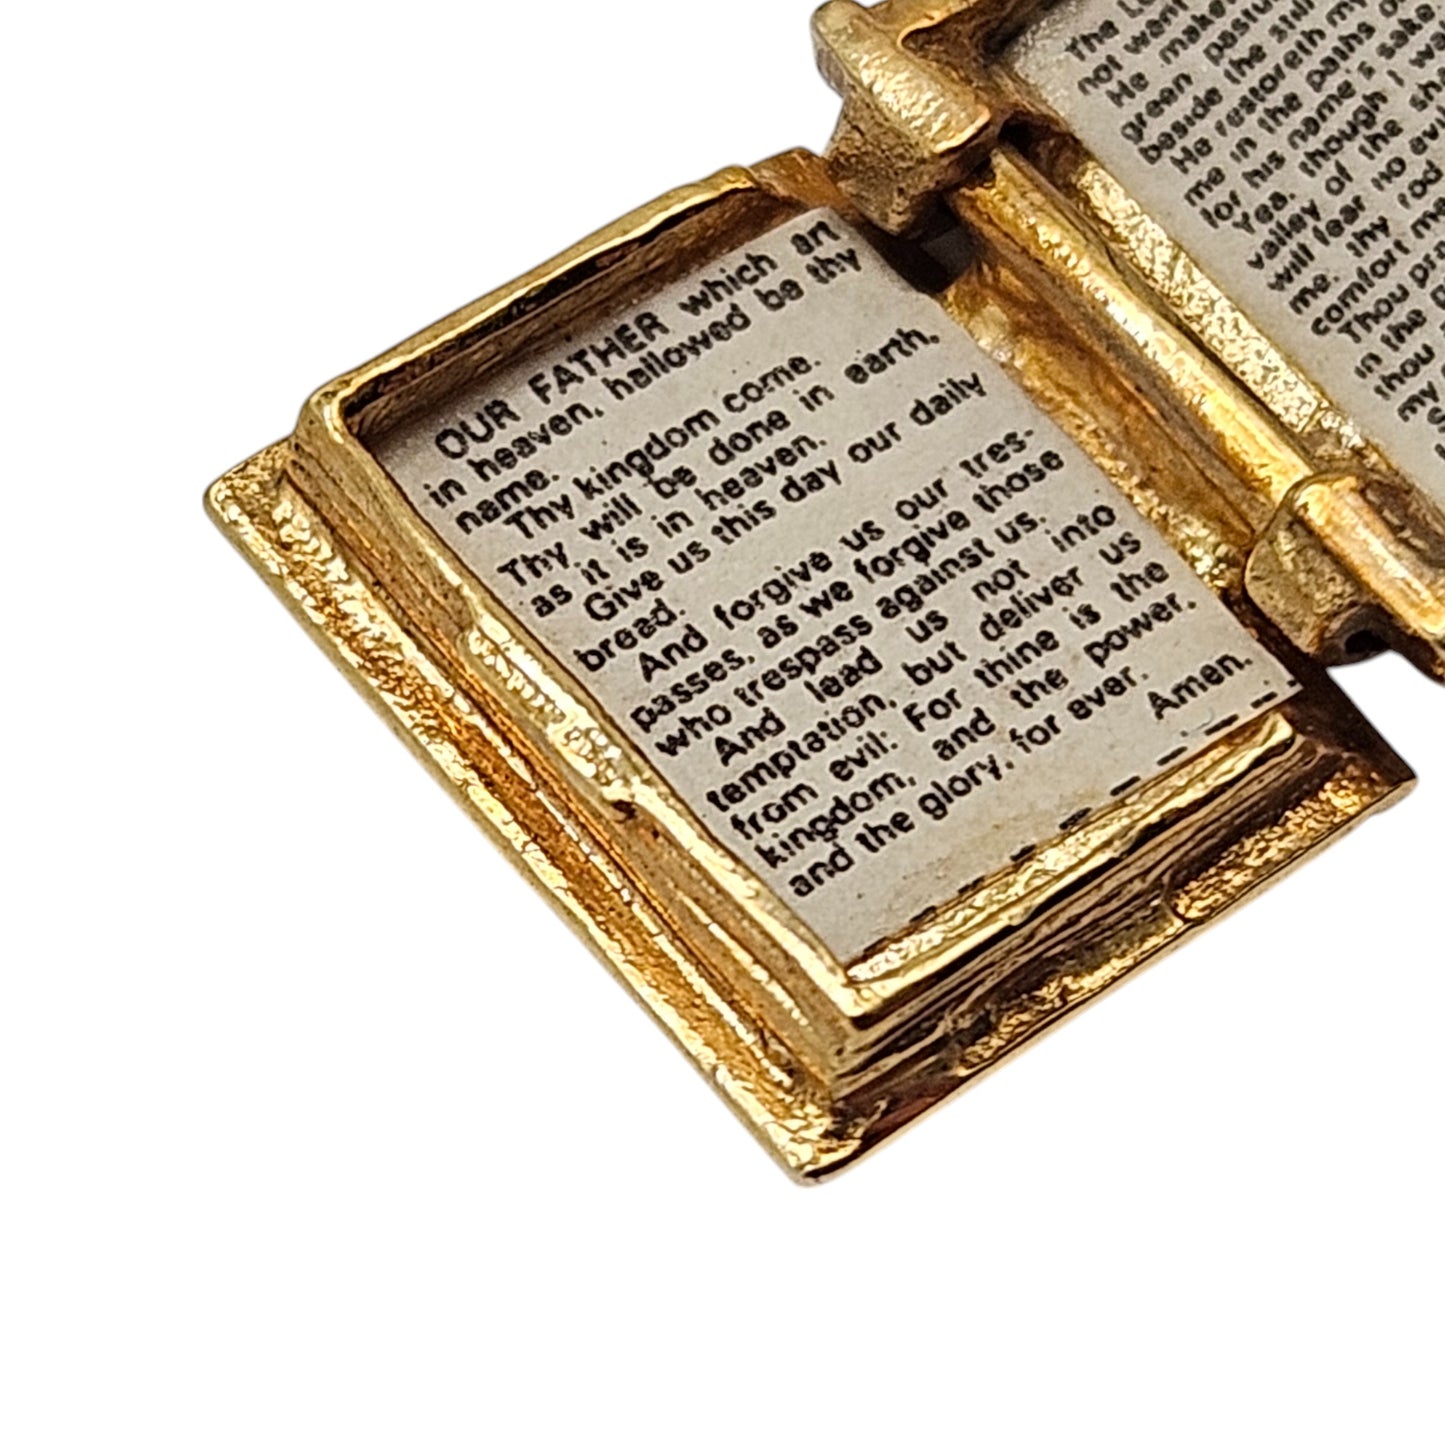 OUR FATHER which art
in heaven, hallowed be thy
name.
Thy kingdom come.
Thy will be done in earth,
as it is in heaven.
Give us this day our daily
bread.
And forgive us our tres-
passes, as we forgive those
who trespass against us.
And lead us not into
temptation, but deliver us
from evil: For thine is the
kingdom, and the power,
and the glory, for ever.
Amen.
The
not want
He
green
beside the still
He restoreth my
me in the paths
for his name's sake
Yea, though I
valley of the
will fear no
me, thy rod
comfort me
Thou
in the
thou